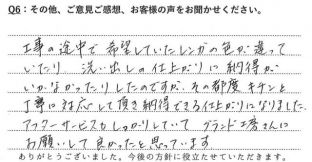 Q6：その他、ご意見ご感想、お客様の声をお聞かせください。
工事の途中で希望していたレンガの色が違って
いたり 洗い出しの仕上がりに納得が
いかなかったりしたのですが、その都度キチンと
丁寧に対応して頂き納得できる仕上がりになりました。
アフターサービスもしっかりしていて グランド工房さんに
お願いして良かったと思っています。
ありがとうございました。今後の方針に役立たせていただきます。